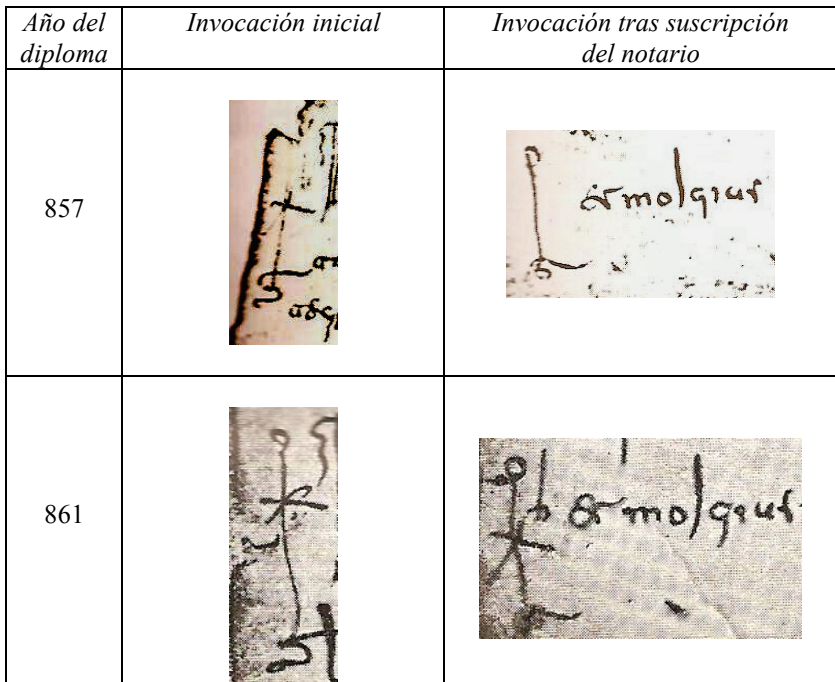 Año del diploma
Invocación inicial
Invocación tras suscripción del notario
857
ermolgius
861
ermolgius